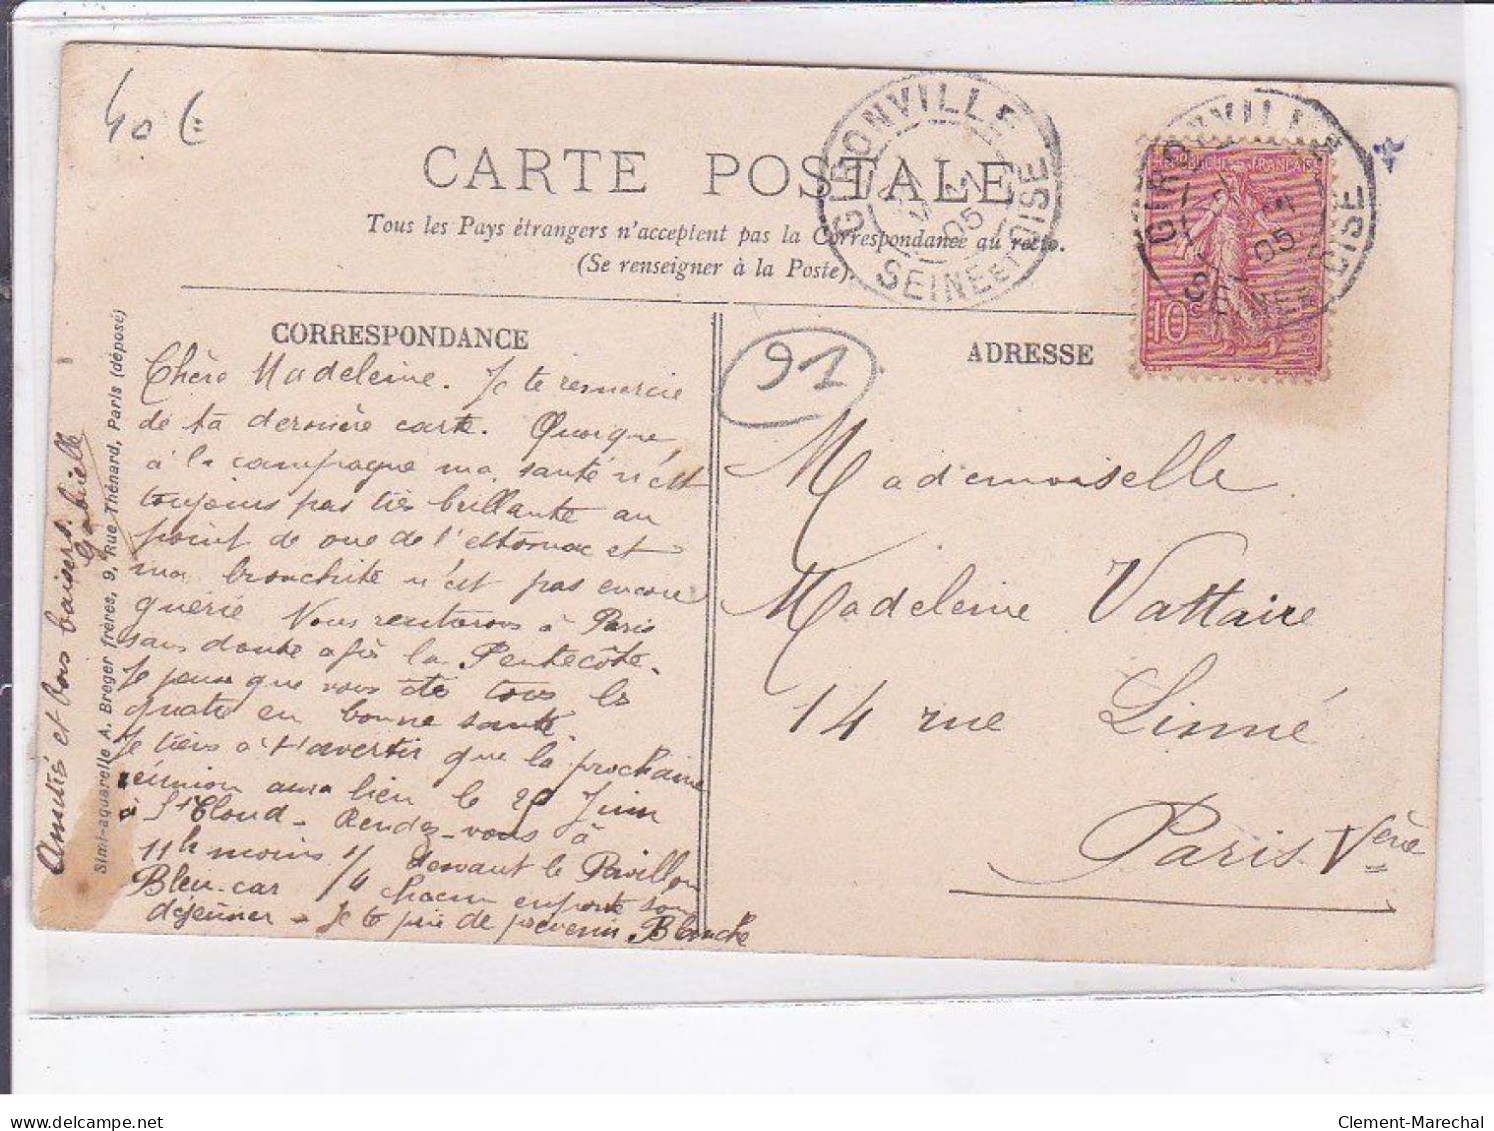 40 €
CARTE POSTALE
Tous les Pays étrangers n'acceptent pas la Correspondance au recto.
(Se renseigner à la Poste).
GIRONVILLE
05
SEINE ET OISE
GIRONVILLE
05
SEINE ET OISE
RÉPUBLIQUE FRANÇAISE
10
POSTES
CORRESPONDANCE
ADRESSE
91
Chère Madeleine. Je te remercie
de ta dernière carte. Quoique
à la campagne ma santé n'est
toujours pas très brillante au
point de vue de l'estomac et
ma bronchite n'est pas encore
guérie Nous rentrerons à Paris
sans doute après la Pentecôte.
Je pense que vous êtes tous les
quatre en bonne santé.
Je tiens à t'avertir que la prochaine
réunion aura lieu le Juin
à St Cloud - Rendez-vous à
11h moins 1/4 devant le Pavillon
Bleu - car chacun emporte son
déjeuner - Je te prie de prévenir Blanche
Amitiés et bons baisers.
Gabrielle
Simi-aquarelle A. Breger frères, 9, Rue Thénard, Paris (déposé)
Mademoiselle
Madeleine Vattaire
14 rue Linné
Paris Vème
Clement-Marechal
delcampe.net